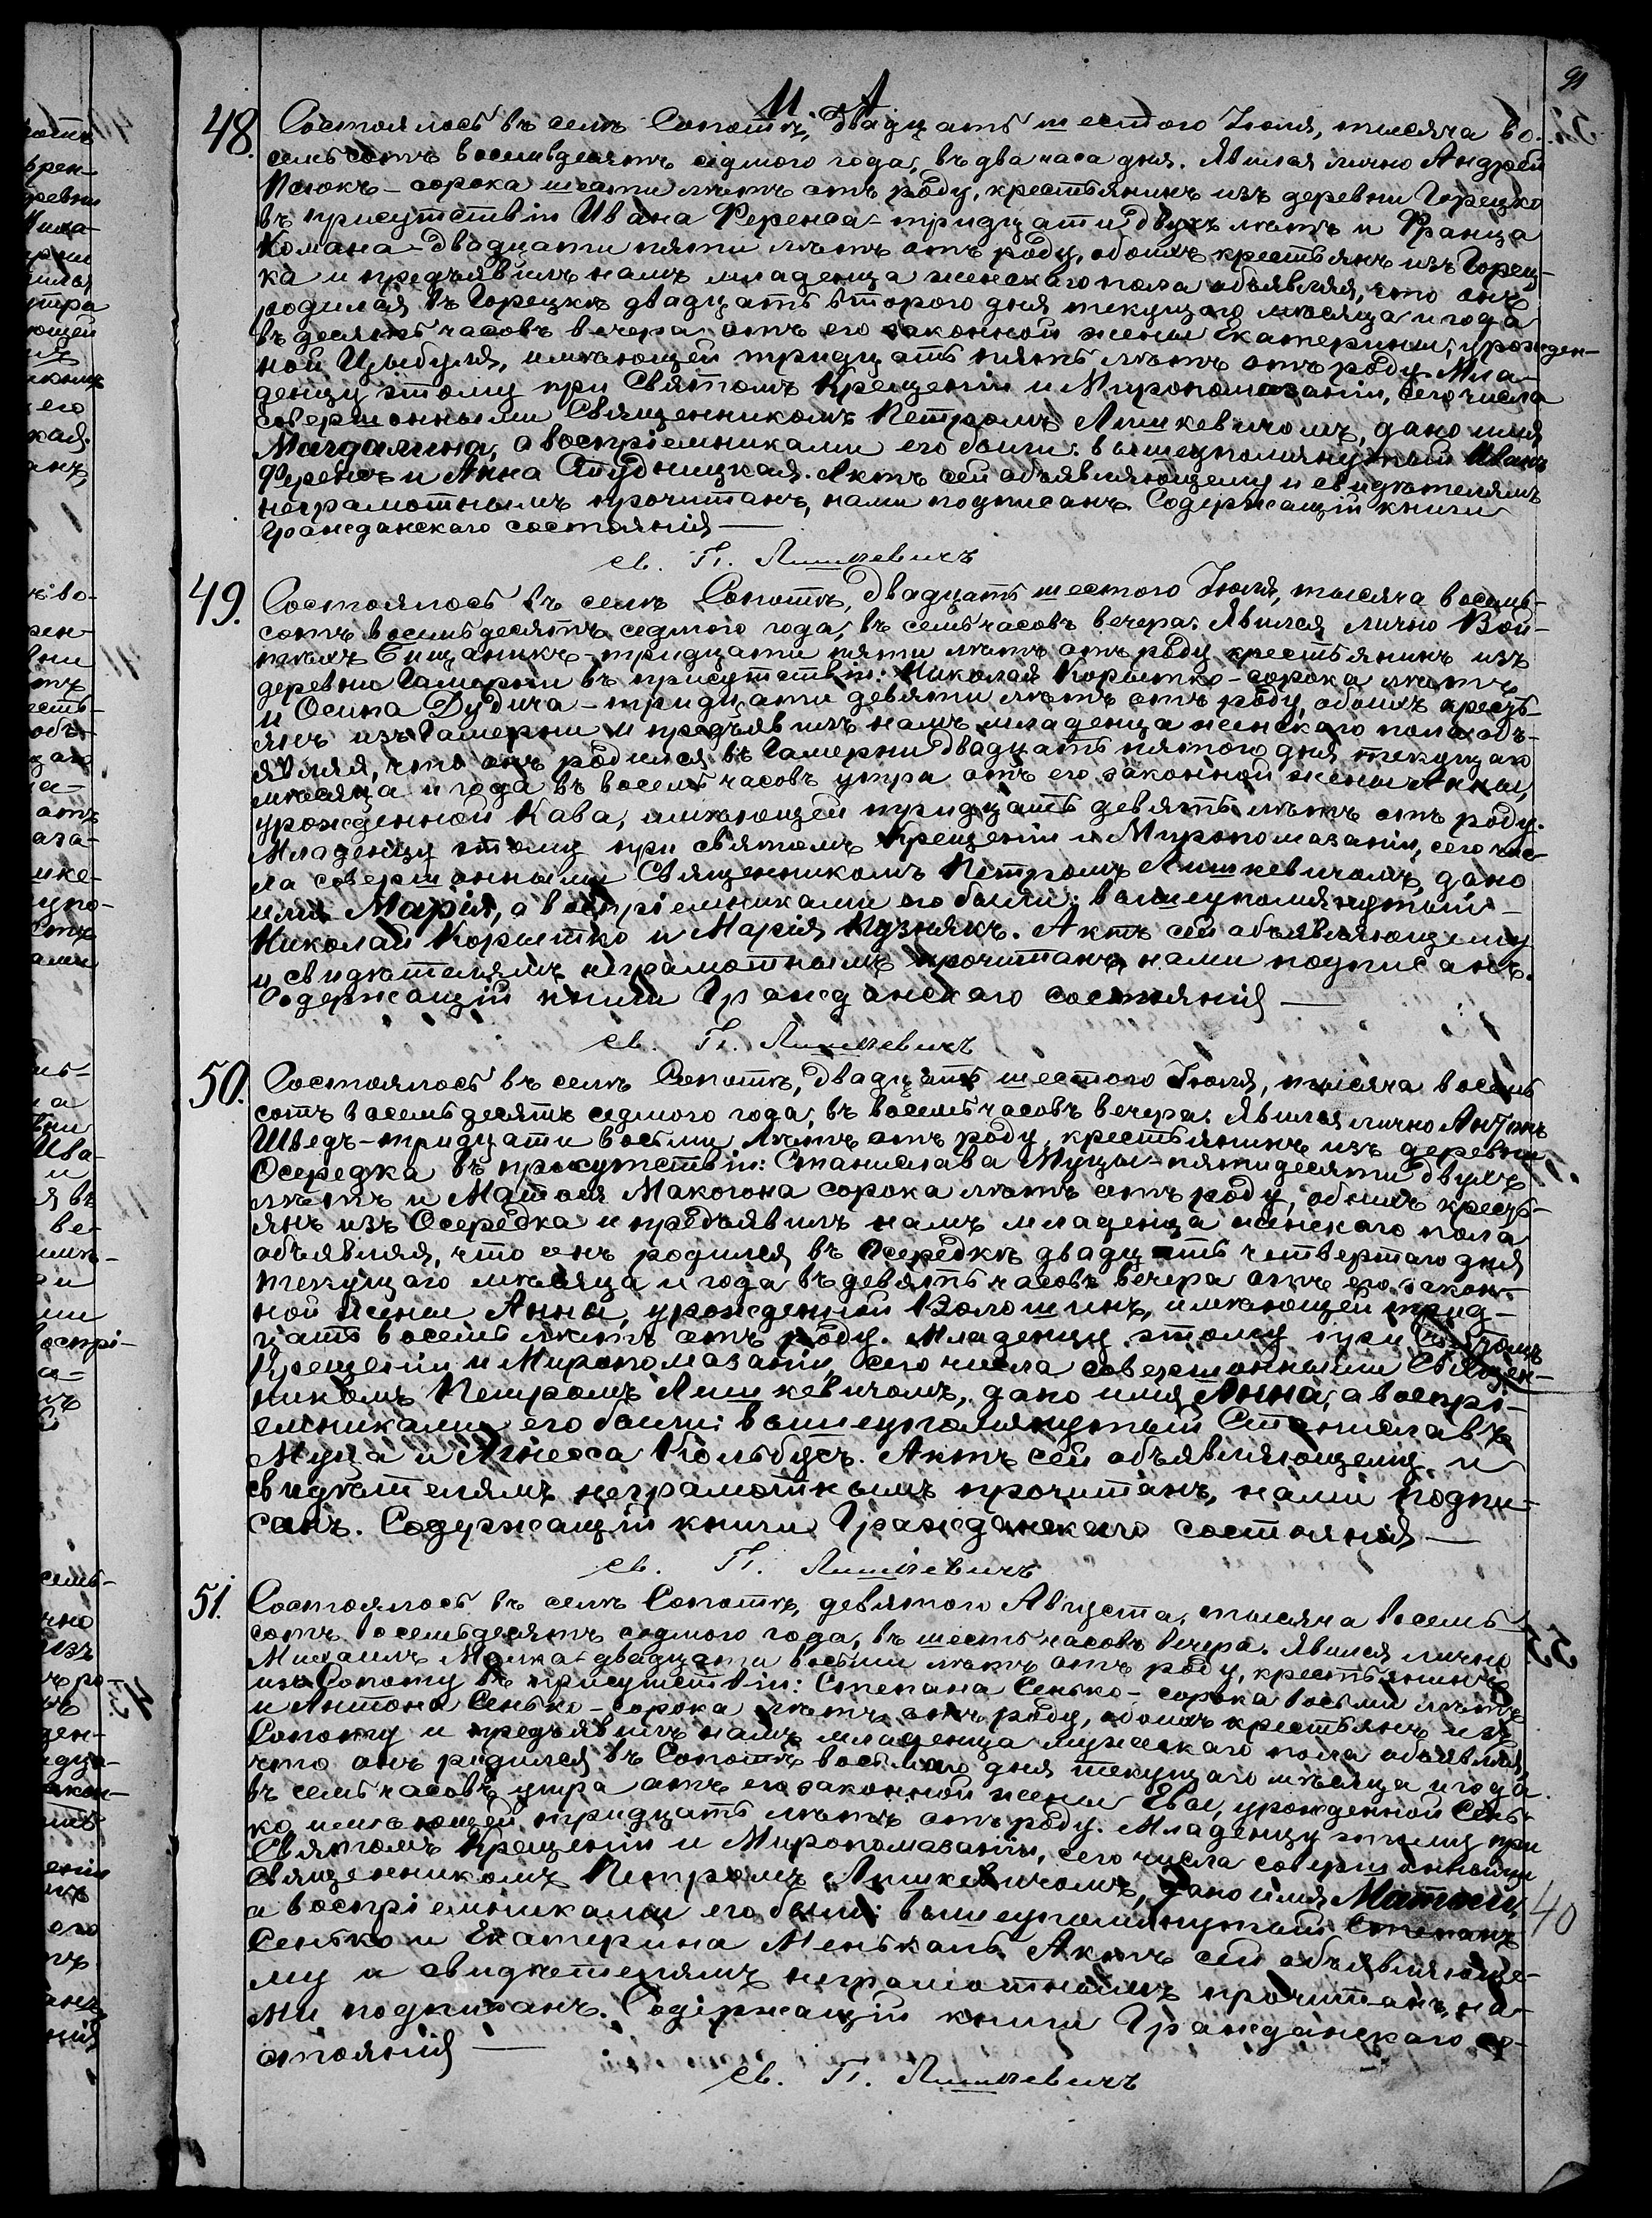 91
11. A
48. Состоялось въ селѣ Сопотѣ, двадцать шестого Іюля, тысяча во-
семьсотъ восемьдесятъ седмого года, въ два часа дня. Явился лично Андрей
Псюкъ - сорока шести лѣтъ отъ роду, крестьянинъ изъ деревни Горецко
въ присутствіи Ивана Ференса - тридцати двухъ лѣтъ и Франца
Комана - двадцати пяти лѣтъ отъ роду, обоихъ крестьянъ изъ Горец-
ка и предъявилъ намъ младенца женскаго пола объявляя, что онъ
родился въ Горецкѣ двадцать второго дня текущаго мѣсяца и года
въ десять часовъ вечера отъ его законной жены Екатерины, урожден-
ной Цыбуля, имѣющей тридцать пять лѣтъ отъ роду. Мла-
денцу этому при Святомъ Крещеніи и Миропомазаніи, сего числа
совершонными Священникомъ Петромъ Лишкевичомъ, дано имя
Магдалина, а воспріемниками его были: вышеупомянутый Иванъ
Ференсъ и Анна Студницкая. Актъ сей объявляющему и свидѣтелямъ
неграмотнымъ прочитанъ, нами подписанъ. Содержащій книги
Гражданскаго состоянія —
св. П. Лишкевичъ
49. Состоялось въ селѣ Сопотѣ, двадцать шестого Іюля, тысяча восемь-
сотъ восемьдесятъ седмого года, въ семь часовъ вечера. Явился лично Вой-
тѣхъ Бищаникъ - тридцати пяти лѣтъ отъ роду крестьянинъ изъ
деревни Гамерни въ присутствіи: Николая Корытко - сорока лѣтъ
и Осипа Дудича - тридцати девяти лѣтъ отъ роду, обоихъ кресть-
янъ изъ Гамерни и предъявилъ намъ младенца женскаго пола объ-
являя, что онъ родился въ Гамерни двадцать пятого дня текущаго
мѣсяца и года въ восемь часовъ утра отъ его законной жены Анны,
урожденной Кава, имѣющей тридцать девять лѣтъ отъ роду.
Младенцу этому при святомъ Крещеніи и Миропомазаніи, сего чис-
ла совершонными Священникомъ Петромъ Лишкевичомъ, дано
имя Марія, а воспріемниками его были: вышеупомянутый -
Николай Корытко и Марія Кузнякъ. Актъ сей объявляющему
и свидѣтелямъ неграмотнымъ прочитанъ, нами подписанъ.
Содержащій книги Гражданскаго состоянія —
св. П. Лишкевичъ
50. Состоялось въ селѣ Сопотѣ, двадцать шестого Іюля, тысяча восемь
сотъ восемьдесятъ седмого года, въ восемь часовъ вечера. Явился лично Антонъ
Шведъ - тридцати восьми лѣтъ отъ роду, крестьянинъ изъ деревни
Осередка въ присутствіи: Станислава Муцы - пятидесяти двухъ
лѣтъ и Матѳея Макогона сорока лѣтъ отъ роду, обоихъ кресть-
янъ изъ Осередка и предъявилъ намъ младенца женскаго пола
объявляя, что онъ родился въ Осередкѣ двадцать четвертаго дня
текущаго мѣсяца и года въ девять часовъ вечера отъ его закон-
ной жены Анны, урожденной Волошинъ, имѣющей трид-
цать восемь лѣтъ отъ роду. Младенцу этому при Святомъ
Крещеніи и Миропомазаніи, сего числа совершонными Священ-
никомъ Петромъ Лишкевичомъ, дано имя Анна, а воспрі-
емниками его были: вышеупомянутый Станиславъ
Муца и Агнесса Кольбусъ. Актъ сей объявляющему и
свидѣтелямъ неграмотнымъ прочитанъ, нами подпи-
санъ. Содержащій книги Гражданскаго состоянія —
св. П. Лишкевичъ
51. Состоялось въ селѣ Сопотѣ, девятого Августа, тысяча восемь
сотъ восемьдесятъ седмого года, въ шесть часовъ вечера. Явился лично
Михаилъ Малка - двадцати восьми лѣтъ отъ роду, крестьянинъ
изъ Сопоту въ присутствіи: Степана Сенько - сорока восьми лѣтъ
и Антона Сенько - сорока лѣтъ отъ роду, обоихъ крестьянъ изъ
Сопоту и предъявилъ намъ младенца мужескаго пола объявляя,
что онъ родился въ Сопотѣ восьмого дня текущаго мѣсяца и года
въ семь часовъ утра отъ его законной жены Евы, урожденной Сень-
ко имѣющей тридцать лѣтъ отъ роду. Младенцу этому при
Святомъ Крещеніи и Миропомазаніи, сего числа совершонными
Священникомъ Петромъ Лишкевичомъ, дано имя Матѳей,
а воспріемниками его были: вышеупомянутый Степанъ
Сенько и Екатерина Менькаль. Актъ сей объявляюще-
му и свидѣтелямъ неграмотнымъ прочитанъ, на-
ми подписанъ. Содержащій книги Гражданскаго со-
стоянія —
св. П. Лишкевичъ
40